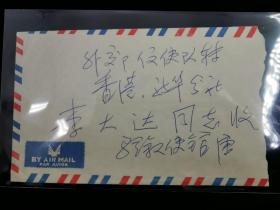 外交部信使队转
香港.新华分社
李大达同志收
BY AIR MAIL
PAR AVION